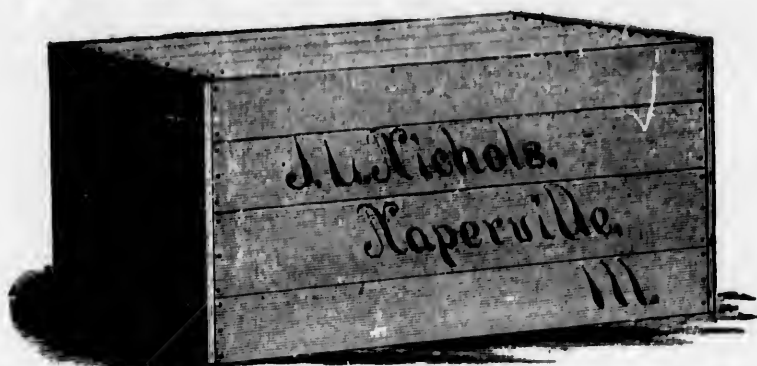 J. L. Nichols.
Naperville,
Ill.